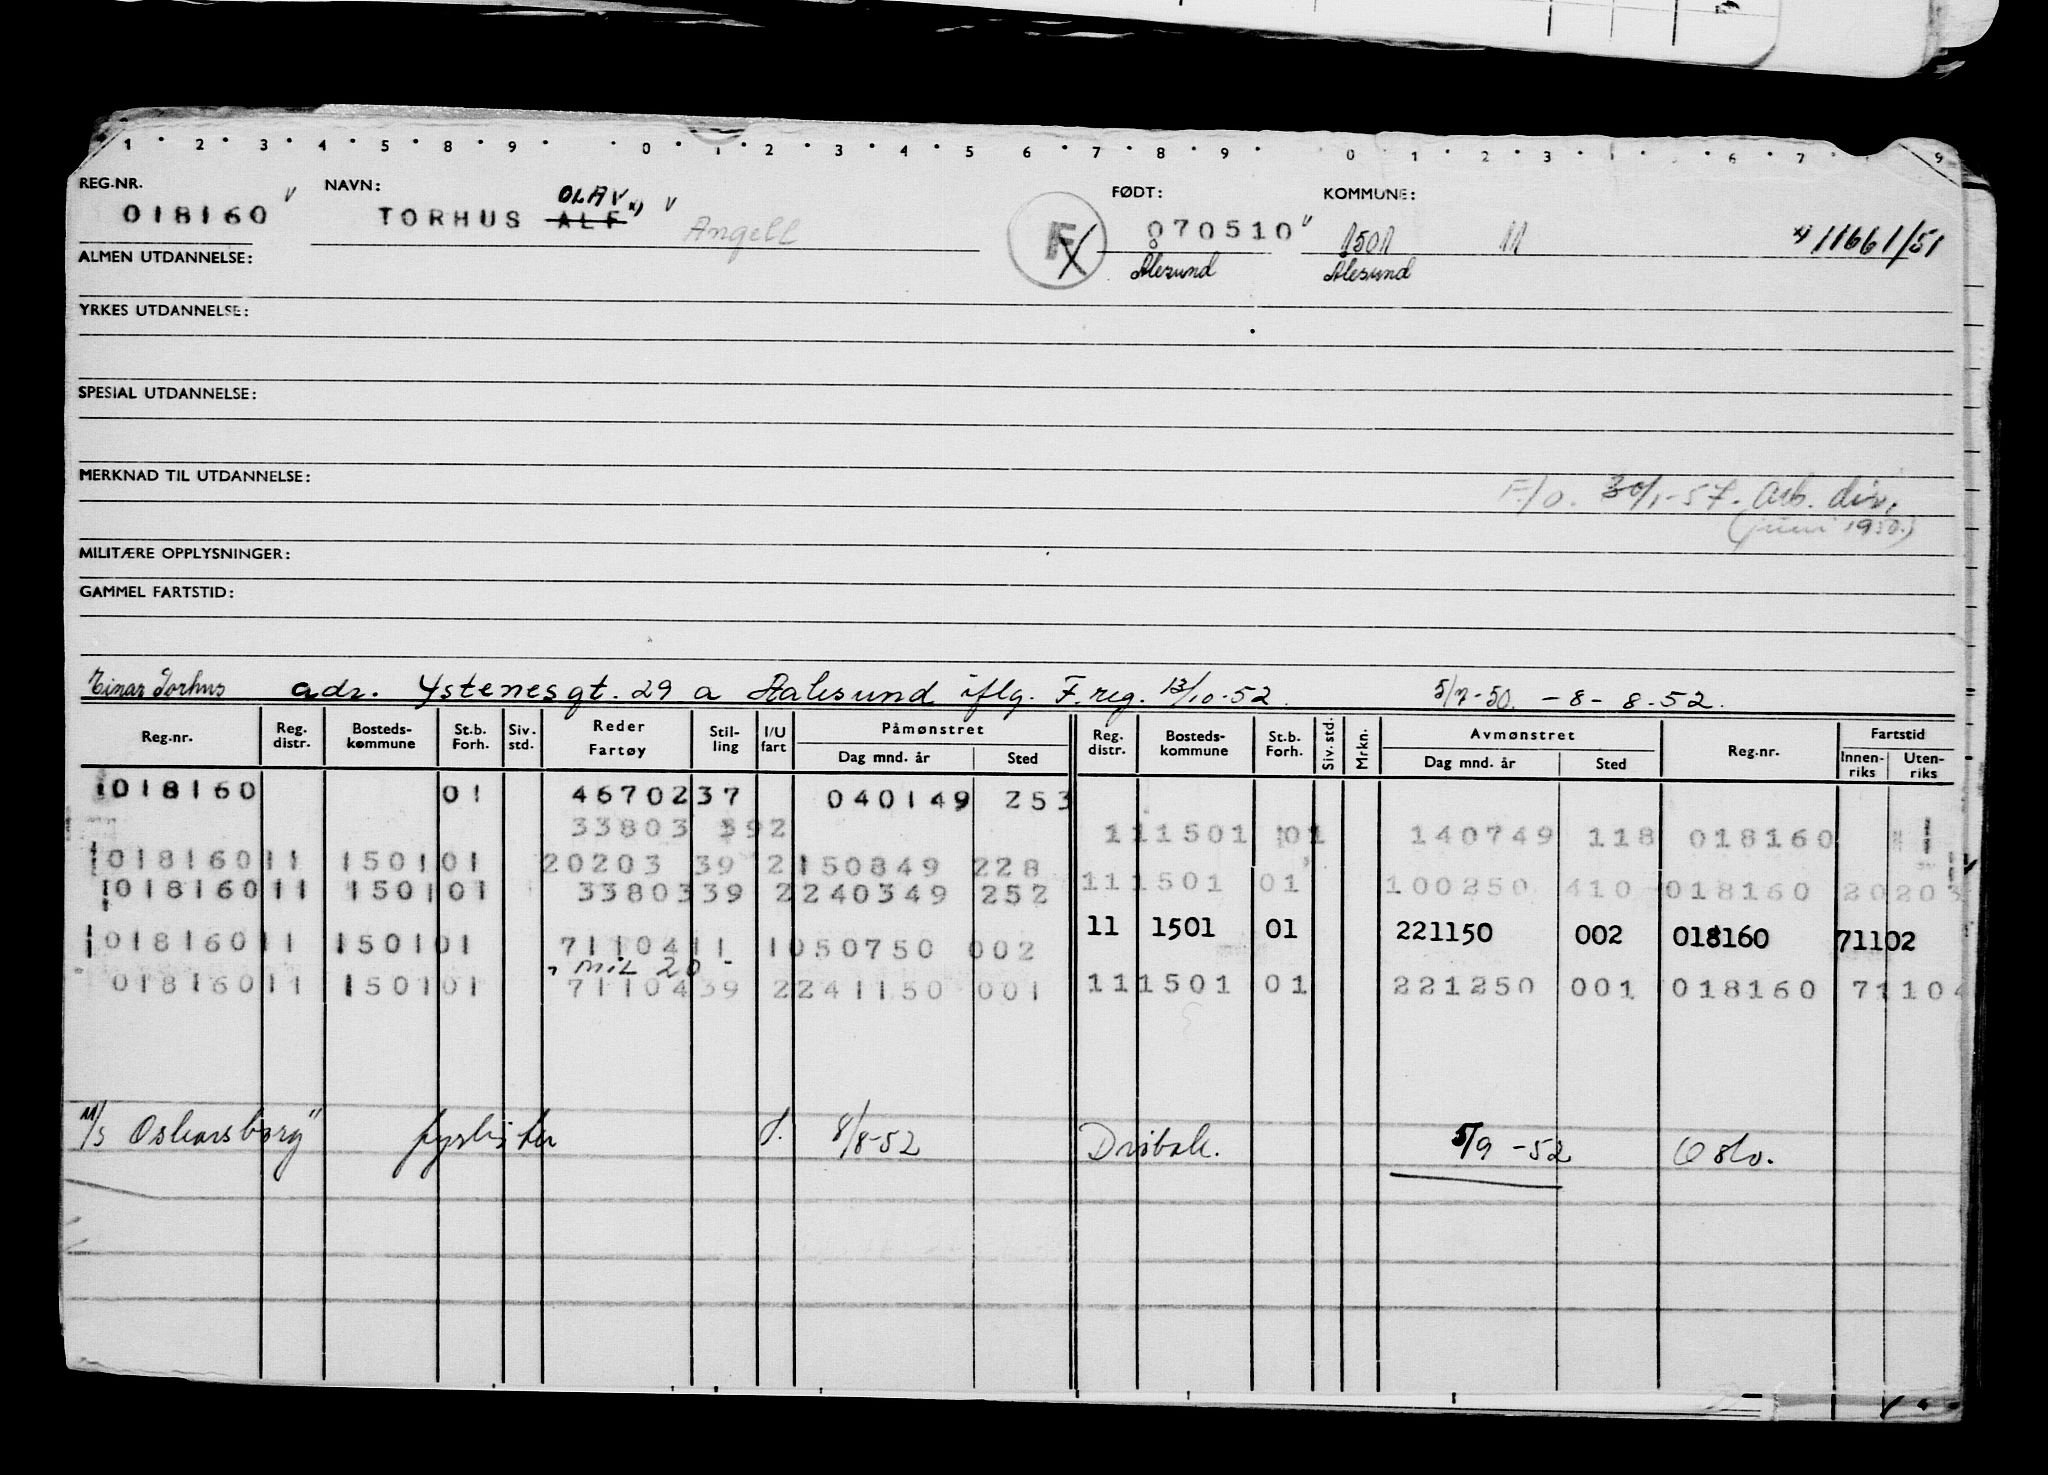 1 2 3 4 5 8 9 0 1 2 3 4 5 6 7 8 9 0 1 2 3 6 7 9
REG.NR. NAVN: OLAV x) FØDT: KOMMUNE:
018160 TORHUS ALF Angell F 070510 1501 11 x) 11661/51
ALMEN UTDANNELSE: Ålesund Ålesund
YRKES UTDANNELSE:
SPESIAL UTDANNELSE:
MERKNAD TIL UTDANNELSE:
F/O. 30/1-57. arb. div.
(juni 1950.)
MILITÆRE OPPLYSNINGER:
GAMMEL FARTSTID:
Einar Torhus adr. Ystenesgt. 29 a Aalesund iflg. F.reg. 13/10-52. 5/7-50. - 8 - 8.52.
Reg.nr. Reg. distr. Bosteds-kommune St.b. Forh. Siv. std. Reder Fartøy Stil-ling I/U fart Påmønstret Dag mnd. år Sted Reg. distr. Bosteds-kommune St.b. Forh. Siv. std. Mrkn. Avmønstret Dag mnd. år Sted Reg.nr. Fartstid Innen-riks Uten-riks
018160 01 46702 37 040149 253
33803 392 11 1501 01 140749 118 018160
018160 11 1501 01 20203 39 2 150849 228
018160 11 1501 01 33803 39 2 240349 252 11 1501 01 100250 410 018160 20203
11 1501 01 221150 002 018160 71102
018160 11 1501 01 71104 11 1 050750 002
" mil 20 -
018160 11 1501 01 71104 39 2 241150 001 11 1501 01 221250 001 018160 71104
M/S Oskarsborg" fyrbøter 8/8-52 Drøbak. 5/9-52 Oslo.